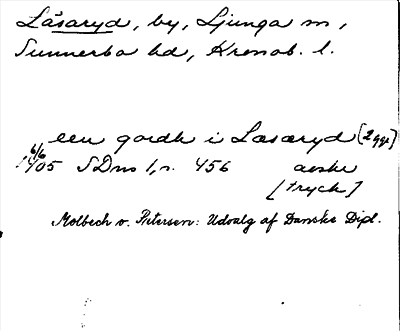 Låsaryd, by, Ljunga sn,
Sunnerbo hd, Kronob. l.
een gordh i Lasaryd (2 ggr)
6/6 1405 SDns 1, s. 456 avskr
[tryck]
Molbech o. Petersen: Udvalg af Danske Dipl.